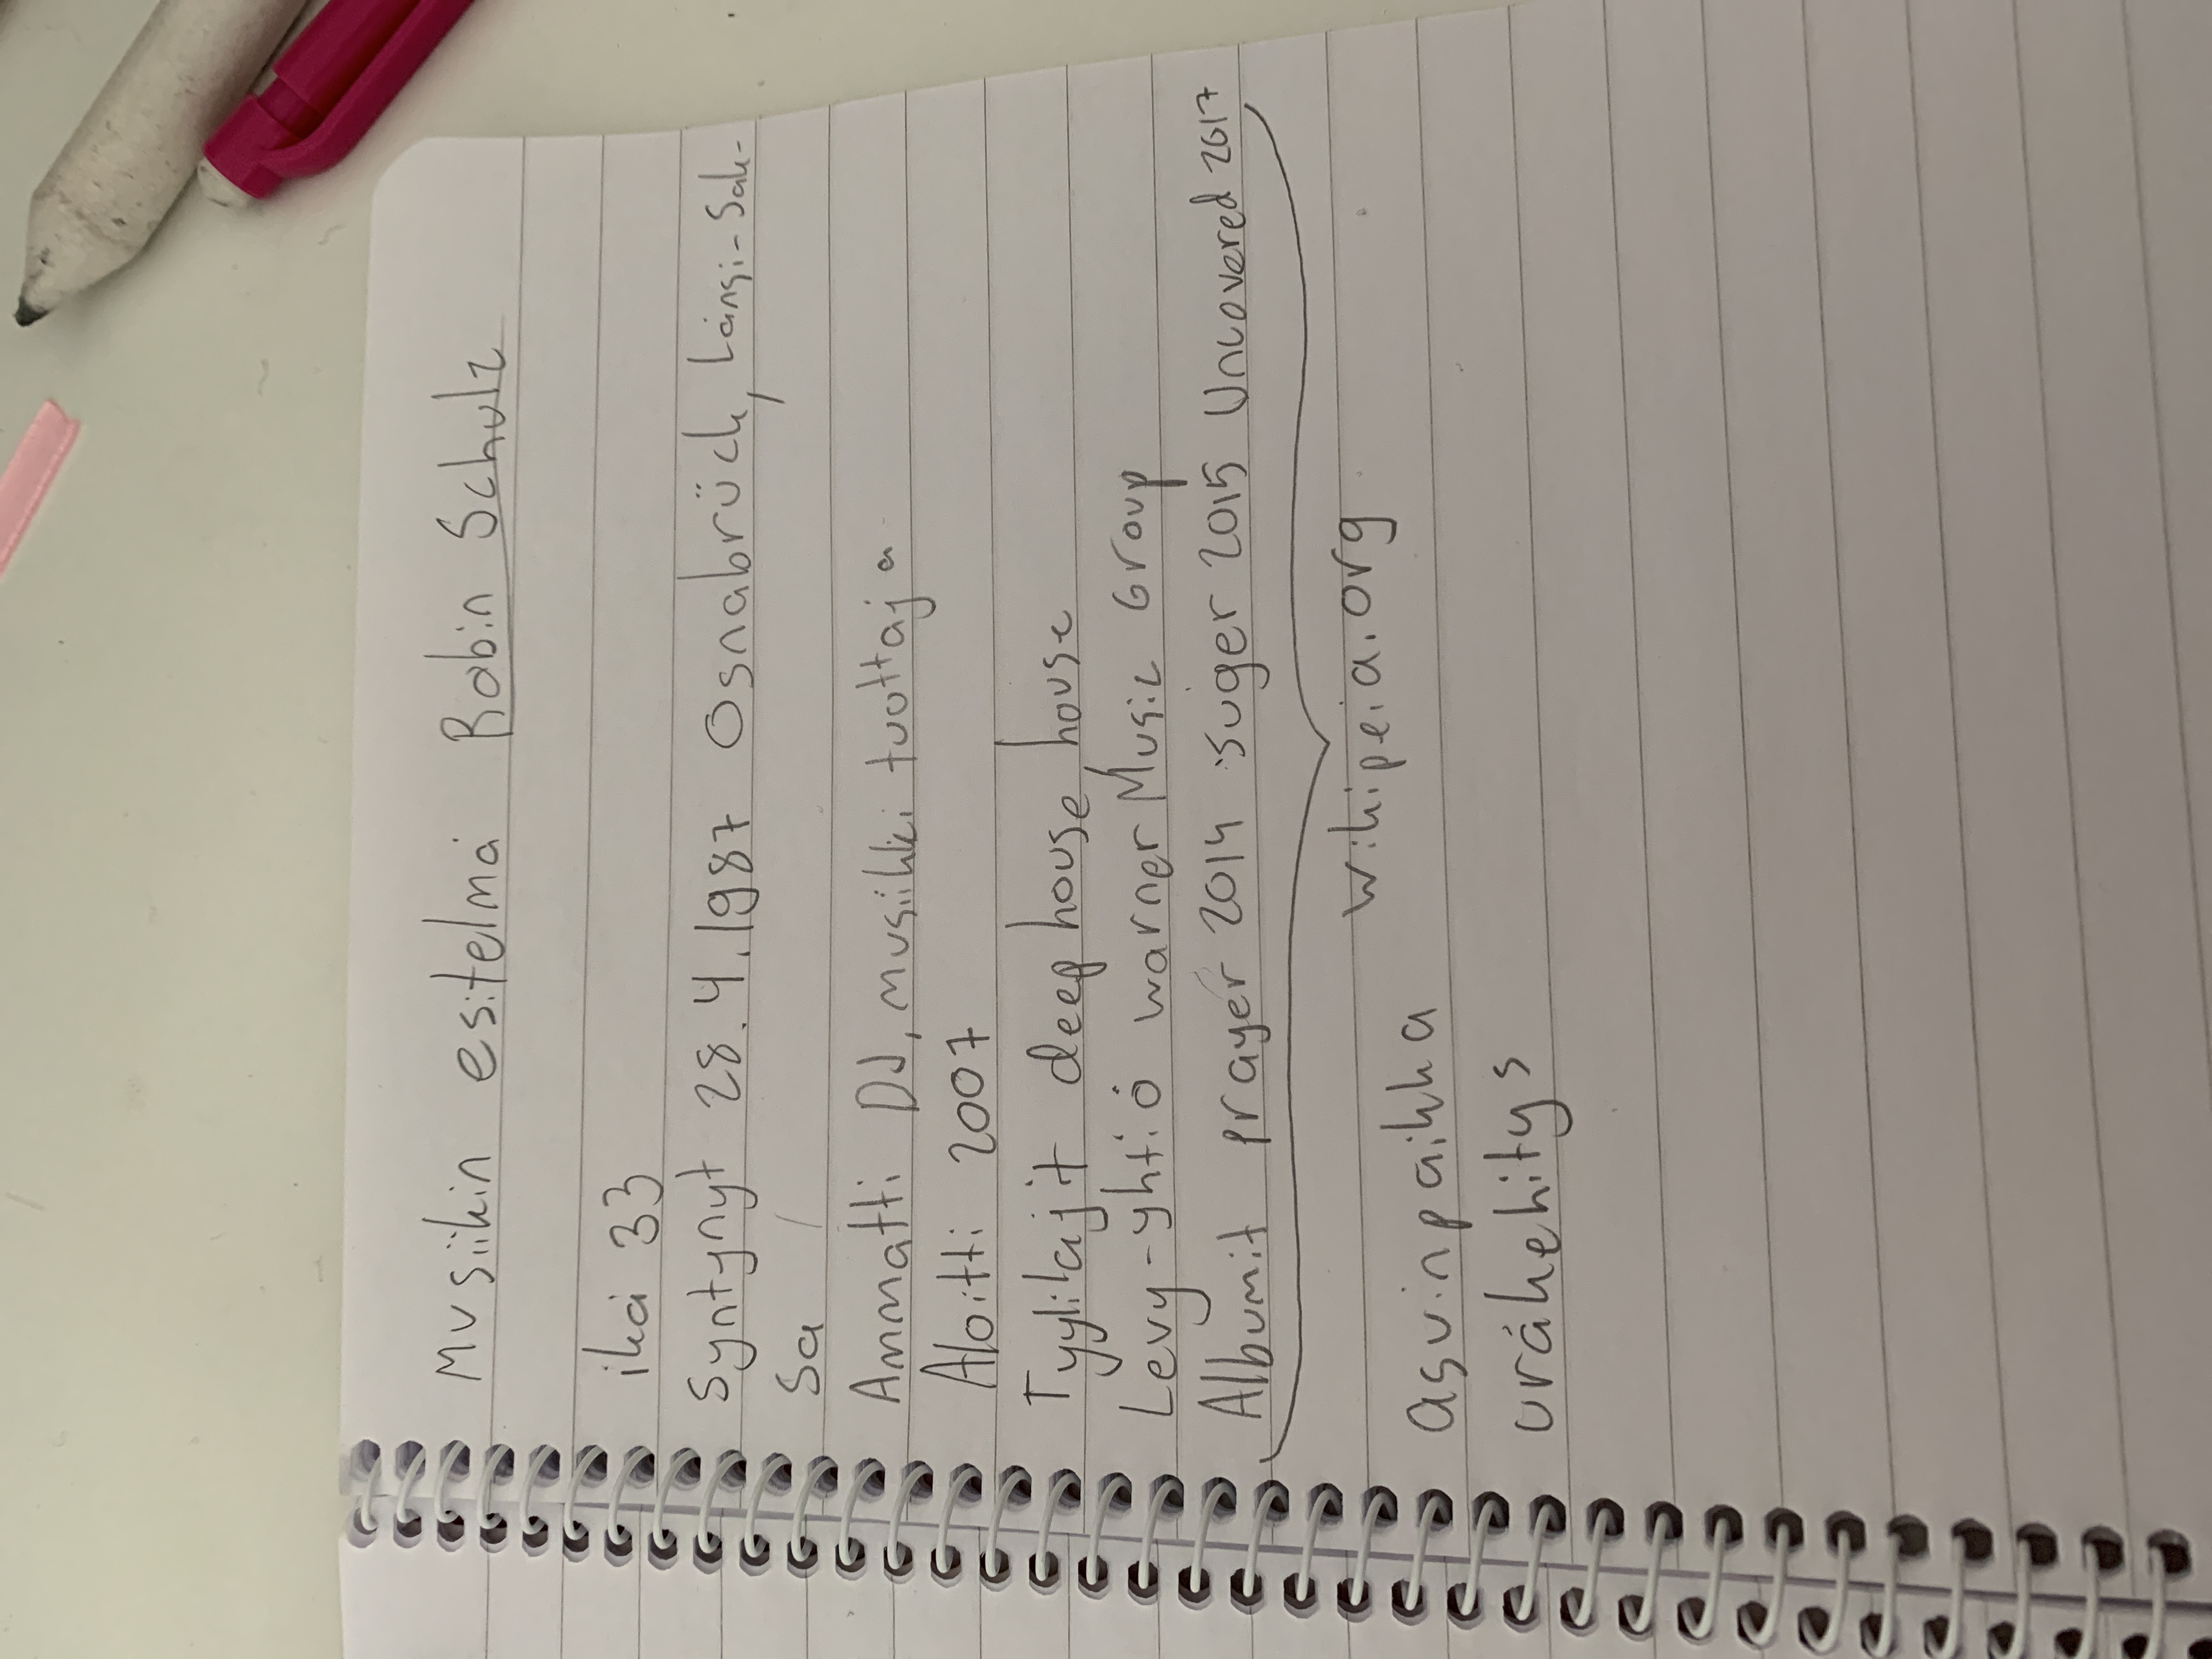 Musiikin esitelmä Robin Schulz
ikä 33
Syntynyt 28.4.1987 Osnabrück, Länsi-Sak-
sa
Ammatti DJ, musiikki tuottaja
Aloitti 2007
Tyylilajit deep house house
Levy-yhtiö warner Music Group
Albumit prayer 2014 suger 2015 Uncovered 2017
wikipeia.org
asuinpaikka
uräkehitys